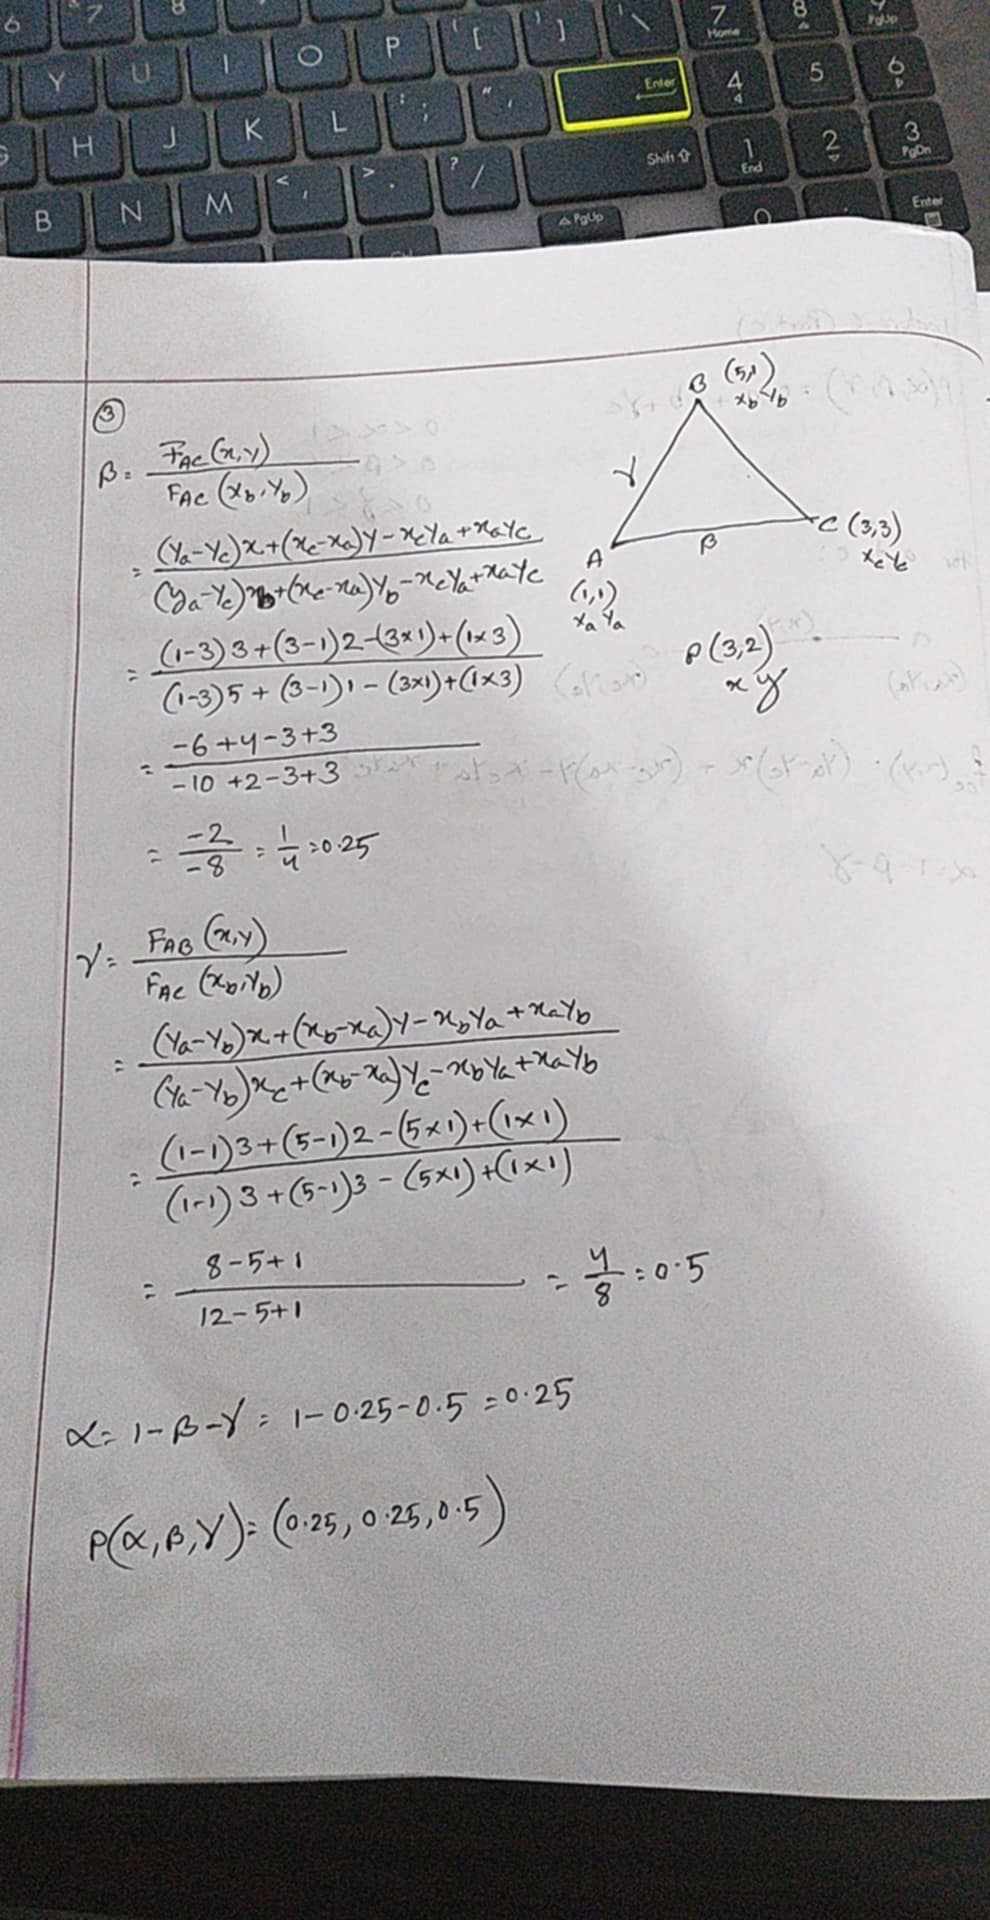 6 7 8 7 Home 8 9 PgUp
Y U I O P [ ] \ 4 5 6
H J K L : ; " ' Enter 1 End 2 3 PgDn
B N M < , > . ? / Shift 0 . Enter
PgUp
③
β = F_AC (x,y) / F_AC (x_b, y_b)
= (y_a-y_c)x+(x_c-x_a)y-x_c y_a+x_a y_c / (y_a-y_c)x_b+(x_c-x_a)y_b-x_c y_a+x_a y_c
= (1-3)3+(3-1)2-(3×1)+(1×3) / (1-3)5+(3-1)1-(3×1)+(1×3)
= -6+4-3+3 / -10+2-3+3
= -2/-8 = 1/4 = 0.25
B (5,1)
x_b y_b
γ
A
β
C (3,3)
x_c y_c
(1,1)
x_a y_a
P(3,2)
x y
γ = F_AB (x,y) / F_AC (x_b, y_b)
= (y_a-y_b)x+(x_b-x_a)y-x_b y_a+x_a y_b / (y_a-y_b)x_c+(x_b-x_a)y_c-x_b y_a+x_a y_b
= (1-1)3+(5-1)2-(5×1)+(1×1) / (1-1)3+(5-1)3-(5×1)+(1×1)
= 8-5+1 / 12-5+1 = 4/8 = 0.5
α = 1-β-γ = 1-0.25-0.5 = 0.25
P(α,β,γ) = (0.25, 0.25, 0.5)